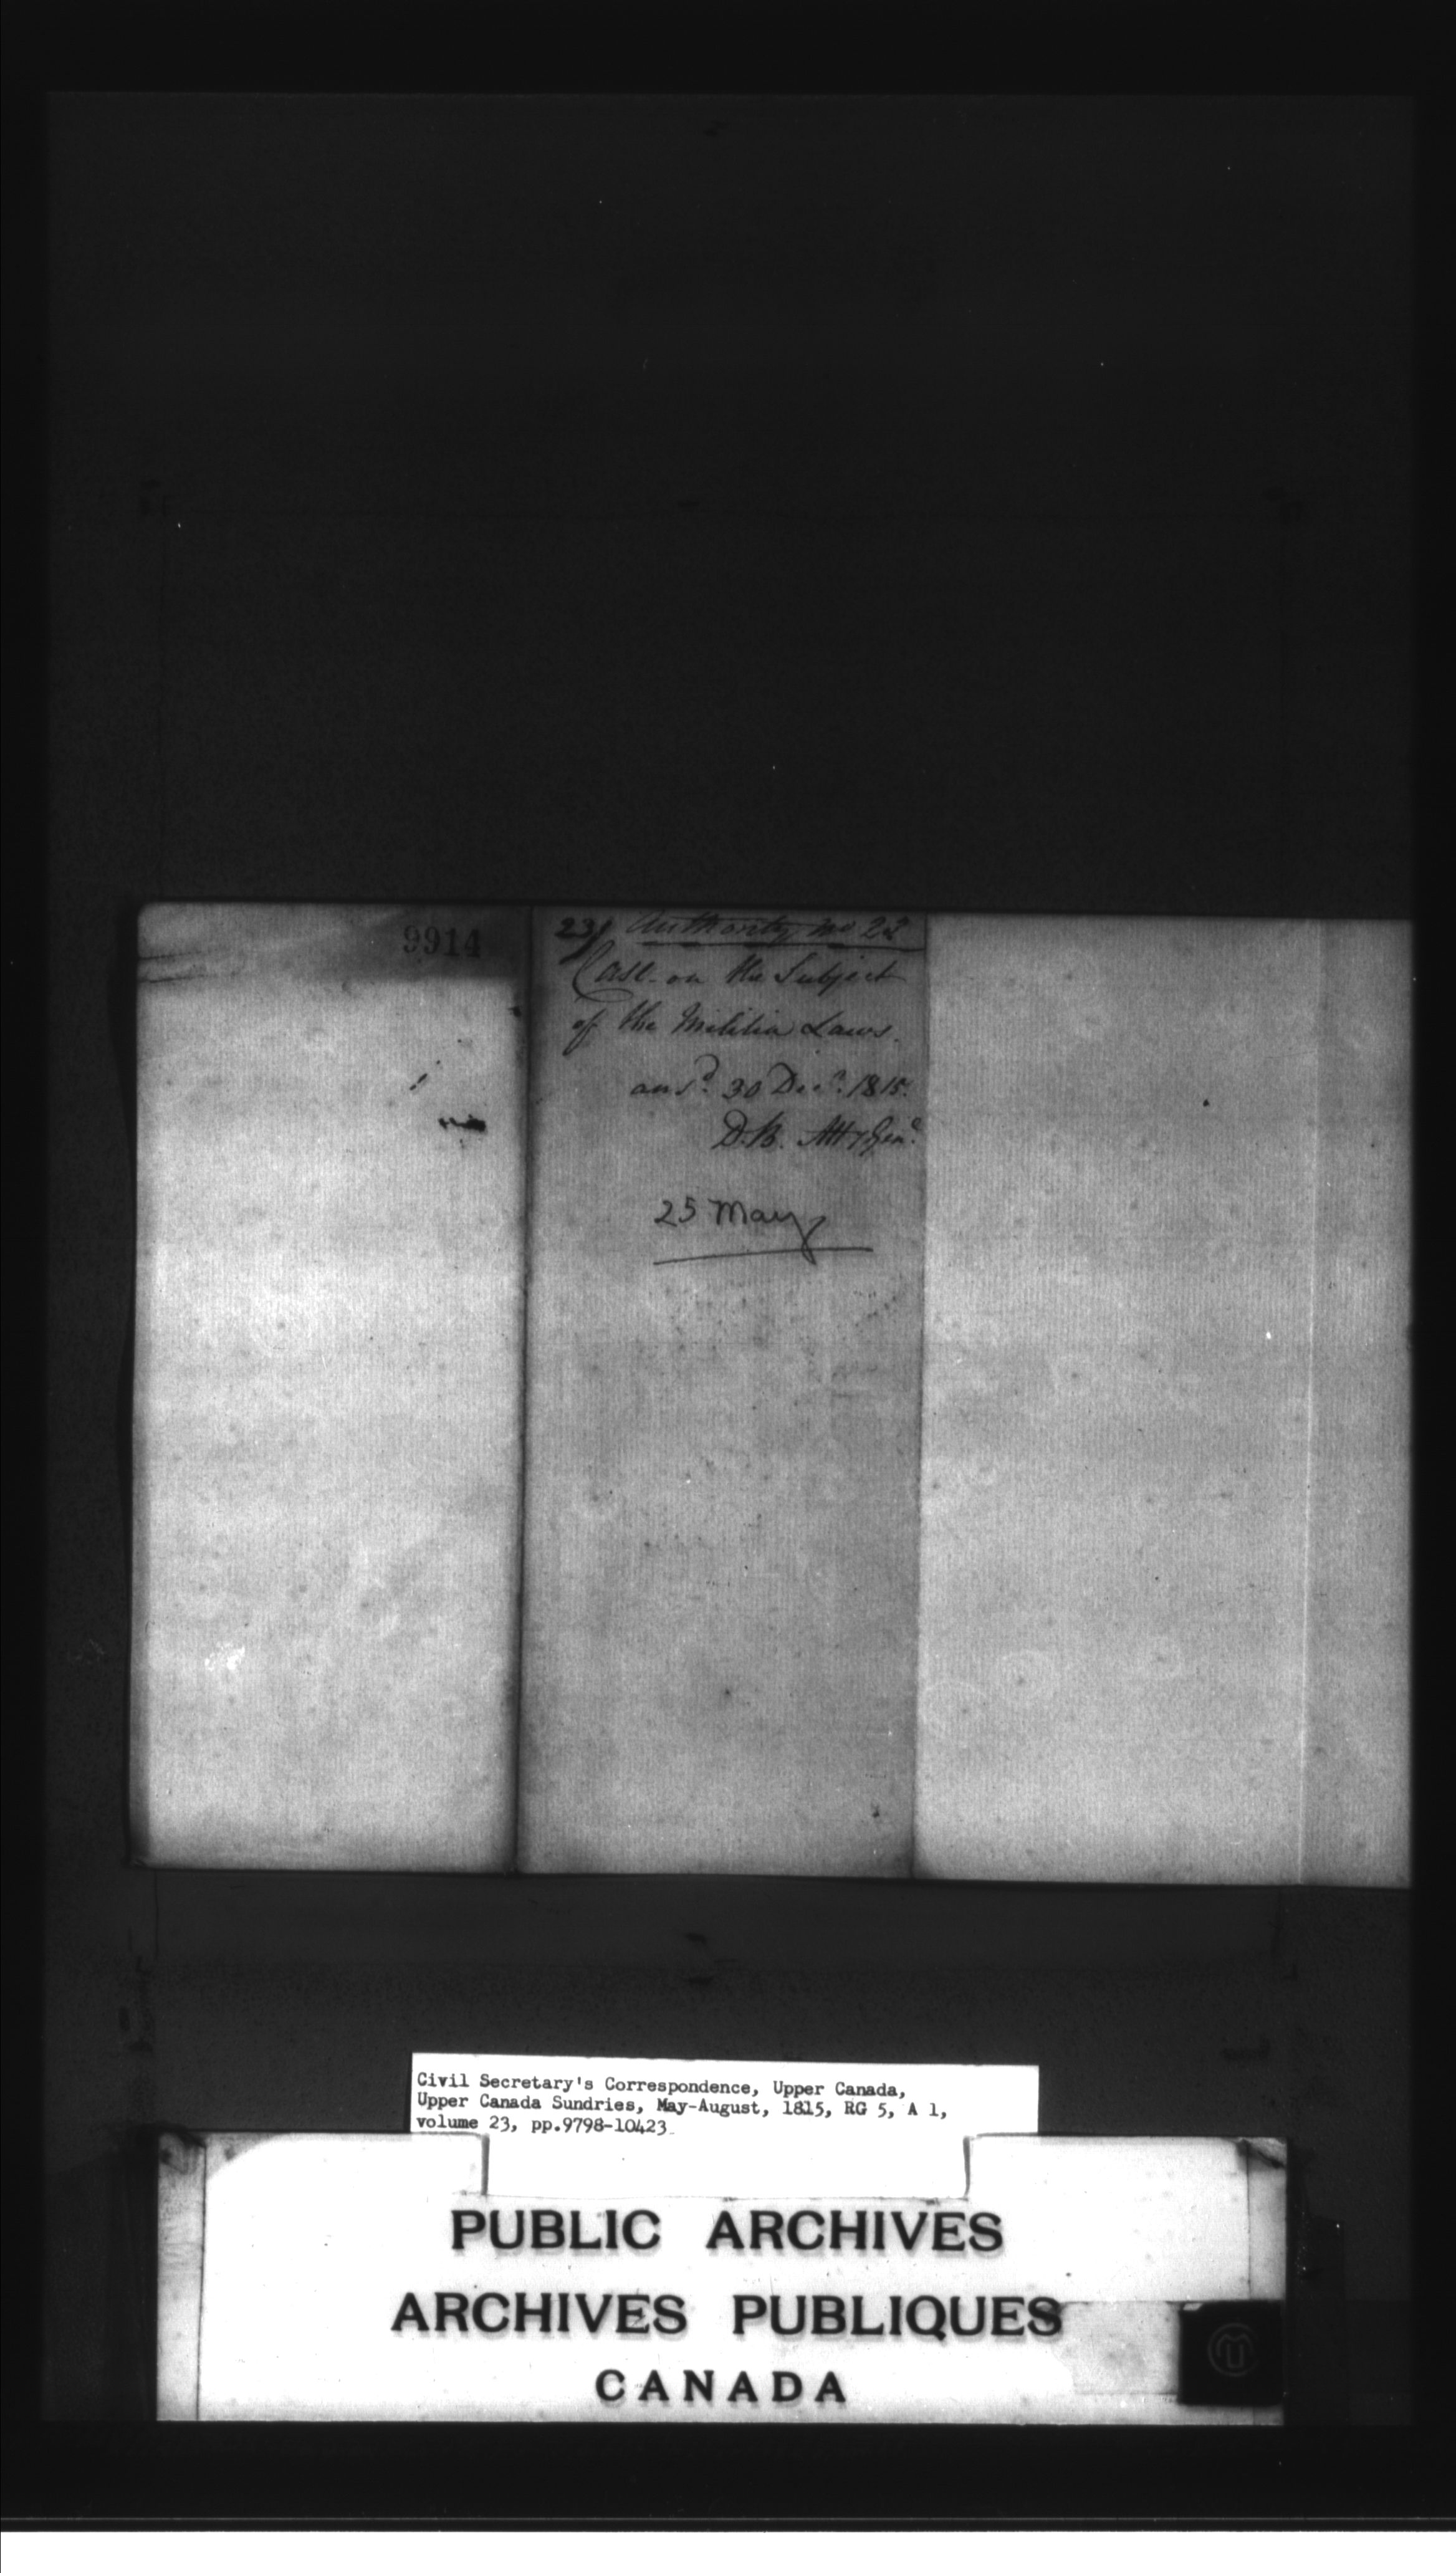 9914
23/ Authority no 22
Case on the Subject
of the Militia Laws.
ansd. 30 Decr. 1815.
D.B. Atty Genl.
25 May
Civil Secretary's Correspondence, Upper Canada,
Upper Canada Sundries, May-August, 1815, RG 5, A 1,
volume 23, pp.9798-10423
PUBLIC ARCHIVES
ARCHIVES PUBLIQUES
CANADA